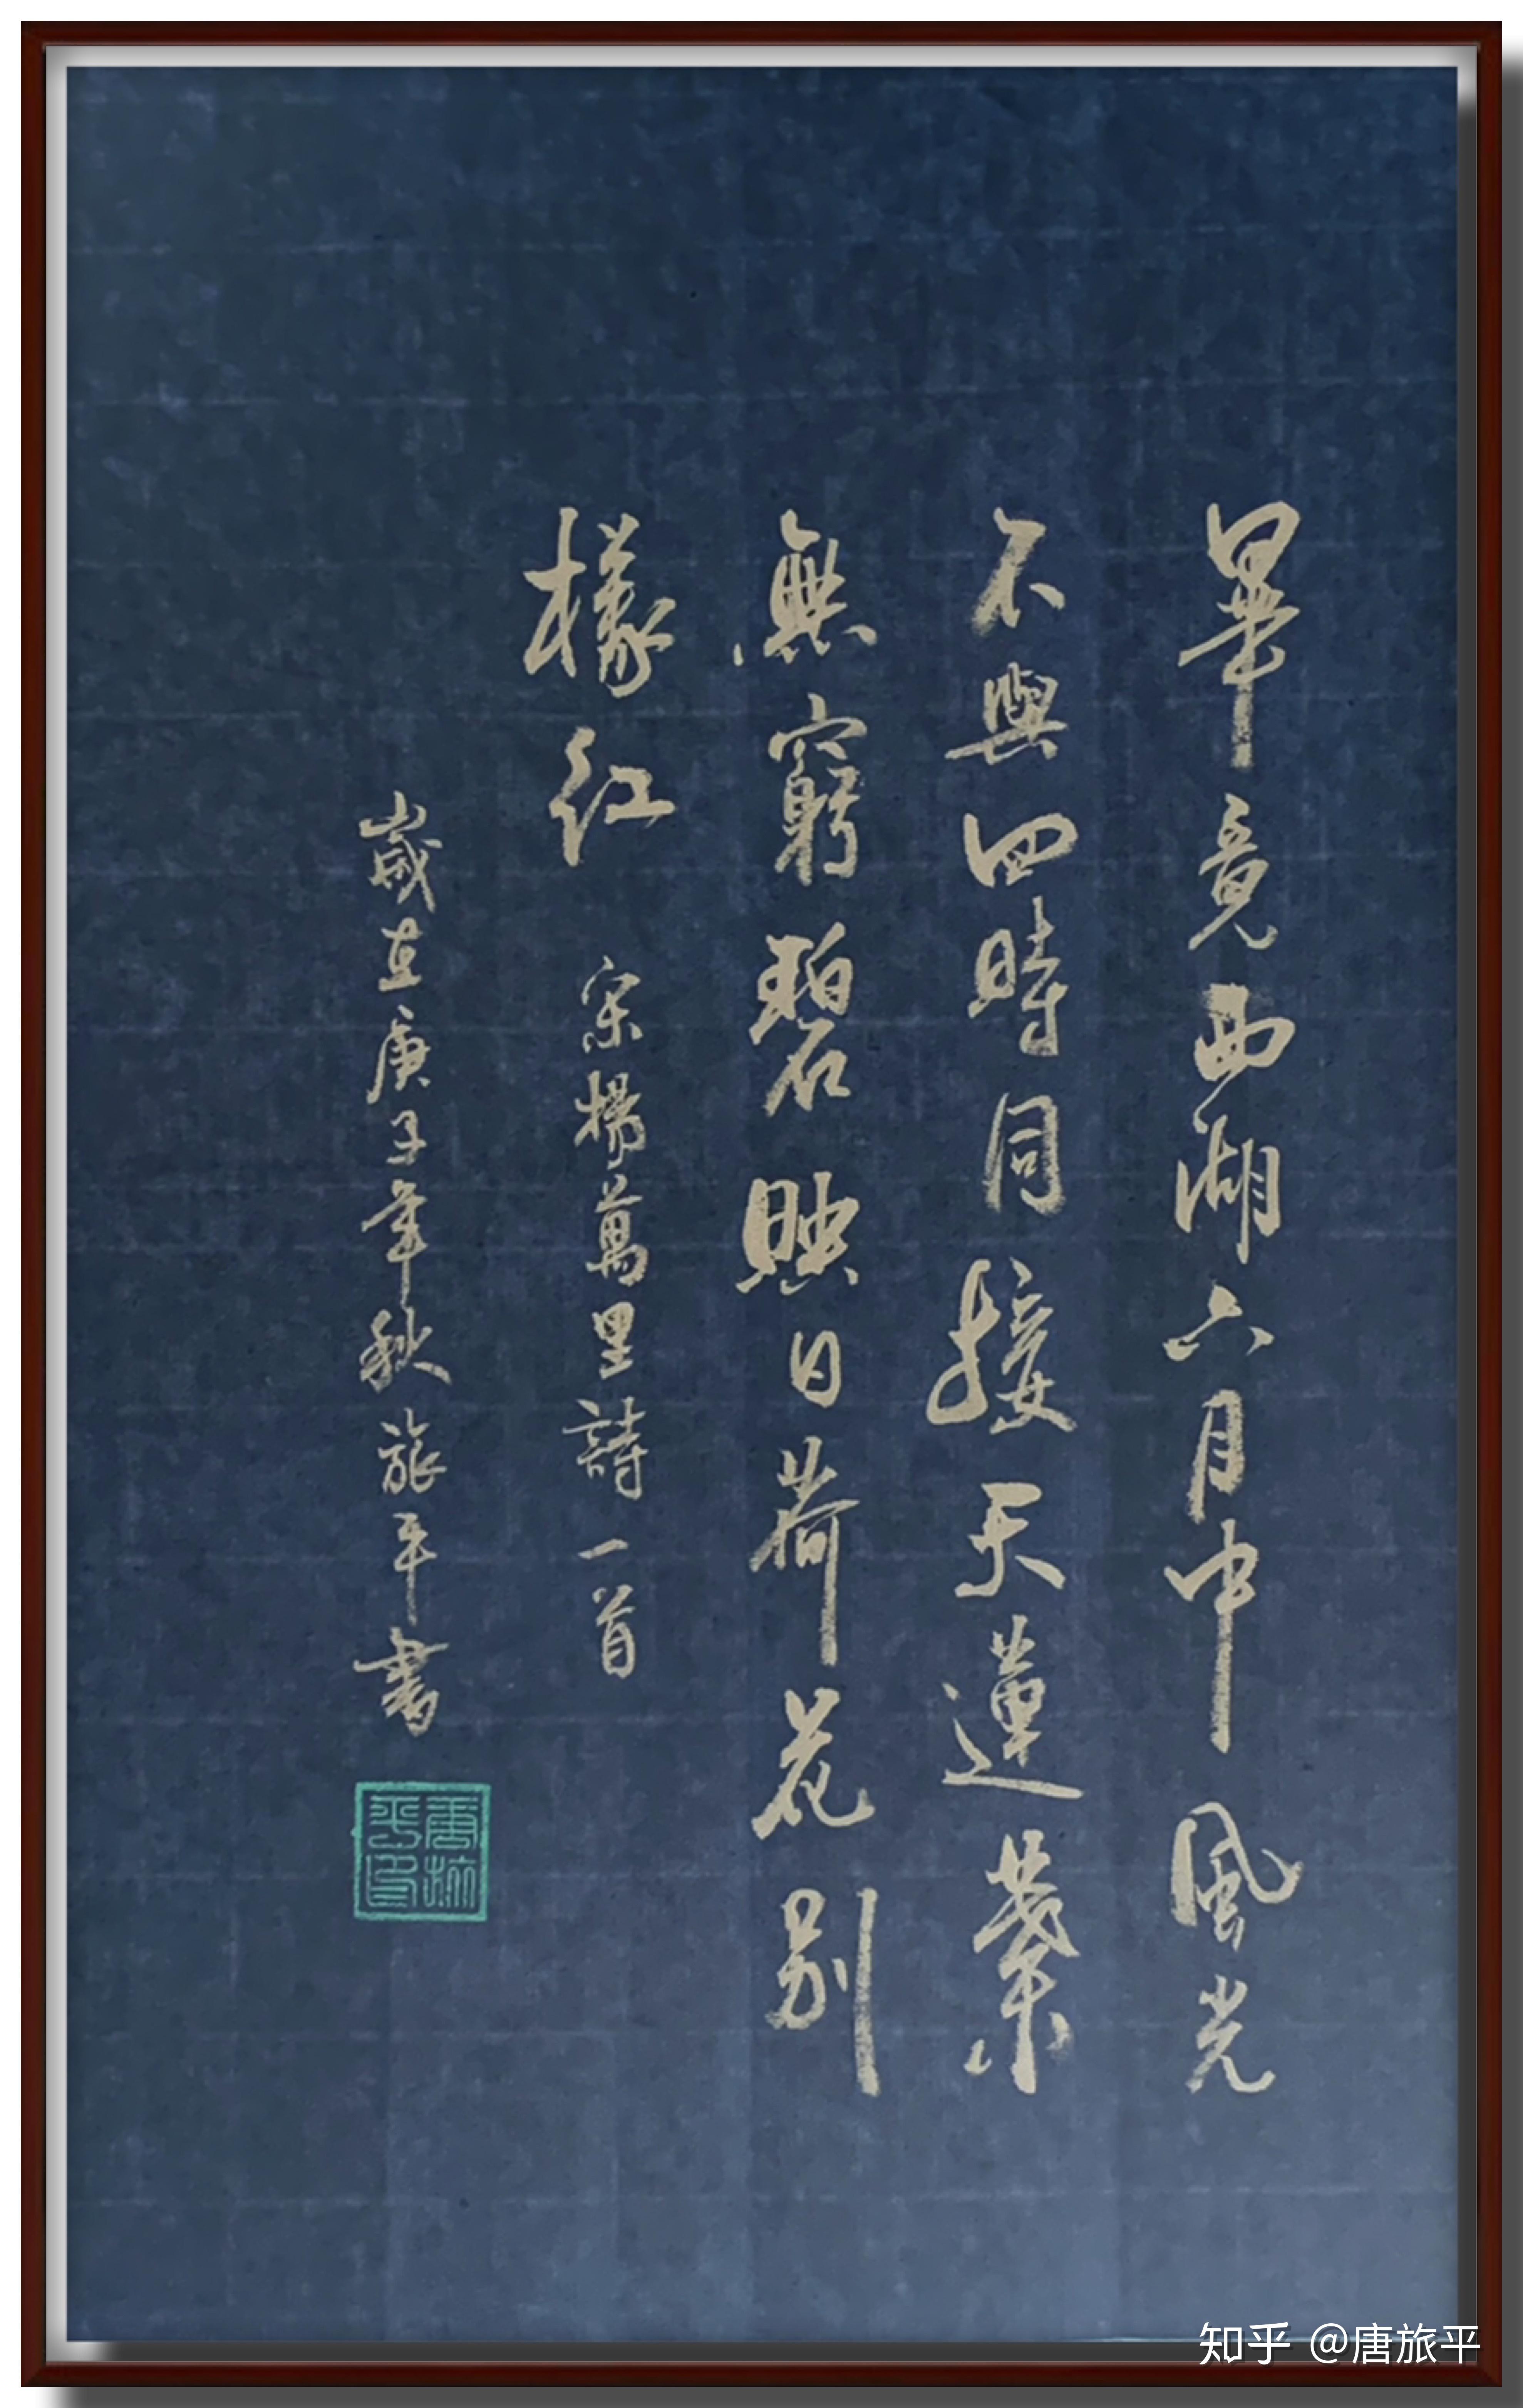 畢竟西湖六月中風光
不與四時同接天蓮葉
無窮碧映日荷花別
樣紅 宋楊萬里詩一首
歲在庚子年秋旅平書
唐旅平印
知乎 @唐旅平